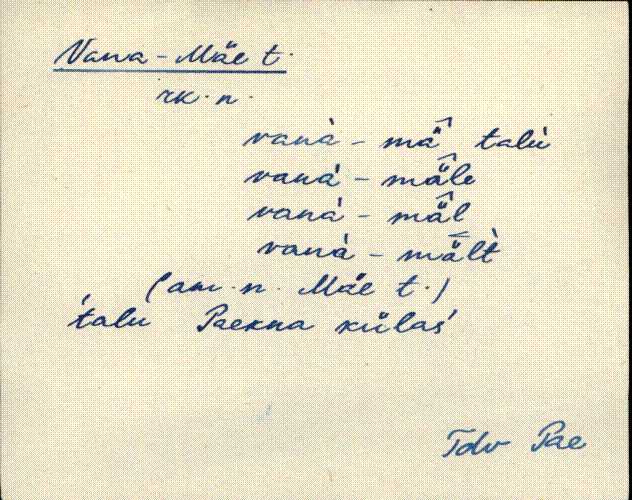 Vana-Mäe t.
rk. n.
vanà - mä̂ talù
vanà - mä̂le
vanà - mä̂l
vanà - mä̀lt
(am. n. Mäe t.)
talu Paekna külas
Tdv Pae